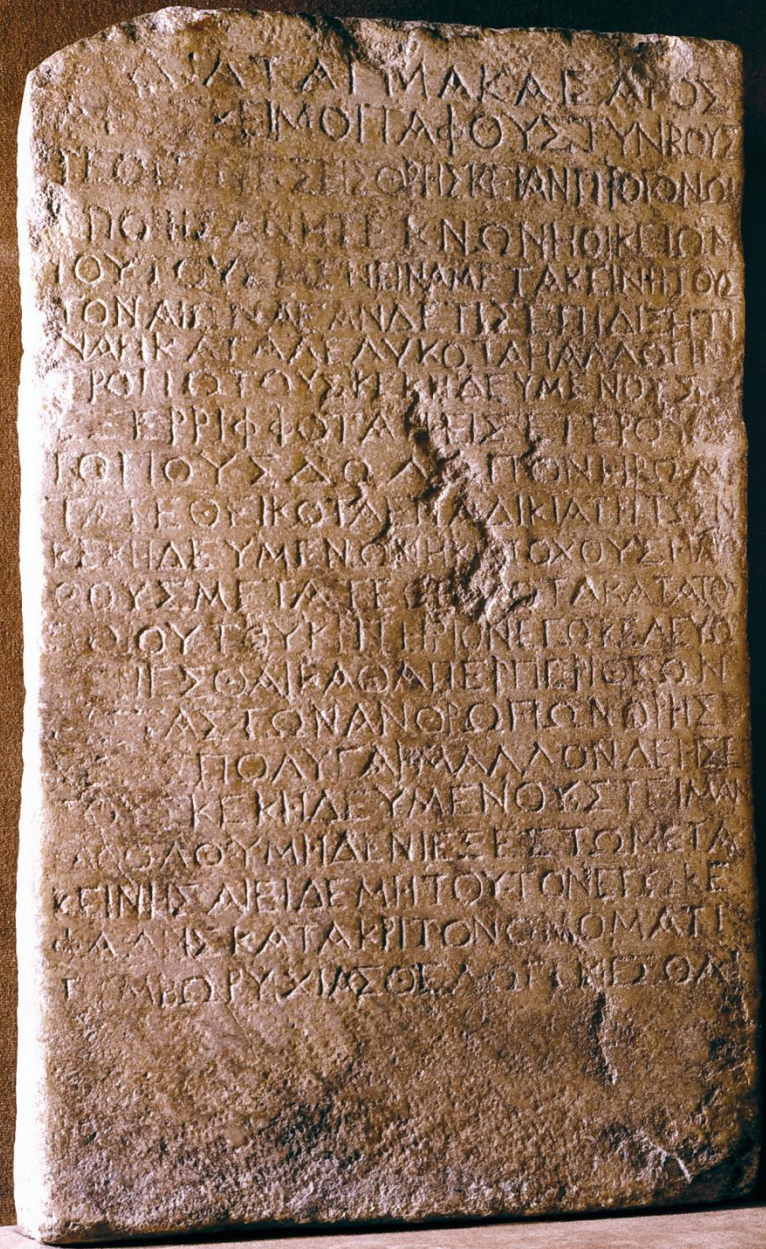 ΔΙΑΤΑΓΜΑ ΚΑΙΣΑΡΟΣ
ΑΡΕΣΚΕΙ ΜΟΙ ΤΑΦΟΥΣ ΤΥΝΒΟΥΣ
ΤΕ ΟΙΤΙΝΕΣ ΕΙΣ ΘΡΗΣΚΕΙΑΝ ΠΡΟΓΟΝΩΝ
ΕΠΟΙΗΣΑΝ Η ΤΕΚΝΩΝ Η ΟΙΚΕΙΩΝ
ΤΟΥΤΟΥΣ ΜΕΝΕΙΝ ΑΜΕΤΑΚΕΙΝΗΤΟΥΣ
ΤΟΝ ΑΙΩΝΑ ΕΑΝ ΔΕ ΤΙΣ ΕΠΙΔΙΞΗ ΤΙ
ΝΑ Η ΚΑΤΑΛΕΛΥΚΟΤΑ Η ΑΛΛΩ ΤΙΝΙ
ΤΡΟΠΩ ΤΟΥΣ ΚΕΚΗΔΕΥΜΕΝΟΥΣ
ΕΞΕΡΡΙΦΦΟΤΑ Η ΕΙΣ ΕΤΕΡΟΥΣ
ΤΟΠΟΥΣ ΔΩΛΩ ΠΟΝΗΡΩ ΜΕ
ΤΑΤΕΘΕΙΚΟΤΑ ΕΠ ΑΔΙΚΙΑ ΤΗ ΤΩΝ
ΚΕΚΗΔΕΥΜΕΝΩΝ Η ΚΑΤΟΧΟΥΣ Η ΛΙ
ΘΟΥΣ ΜΕΤΑΤΕΘΕΙΚΟΤΑ ΚΑΤΑ ΤΟΥ
ΤΟΙΟΥΤΟΥ ΚΡΙΤΗΡΙΟΝ ΕΓΩ ΚΕΛΕΥΩ
ΓΕΝΕΣΘΑΙ ΚΑΘΑΠΕΡ ΠΕΡΙ ΘΕΩΝ
ΕΙΣ ΤΑΣ ΤΩΝ ΑΝΘΡΩΠΩΝ ΘΡΗΣ
ΚΙΑΣ ΠΟΛΥ ΓΑΡ ΜΑΛΛΟΝ ΔΕΗΣΕ
ΤΟΥΣ ΚΕΚΗΔΕΥΜΕΝΟΥΣ ΤΕΙΜΑΝ
ΚΑΘΟΛΟΥ ΜΗΔΕΝΙ ΕΞΕΣΤΩ ΜΕΤΑ
ΚΕΙΝΗΣΑΙ ΕΙ ΔΕ ΜΗ ΤΟΥΤΟΝ ΕΓΩ ΚΕ
ΦΑΛΗΣ ΚΑΤΑΚΡΙΤΟΝ ΟΝΟΜΑΤΙ
ΤΥΜΒΩΡΥΧΙΑΣ ΘΕΛΩ ΓΕΝΕΣΘΑΙ